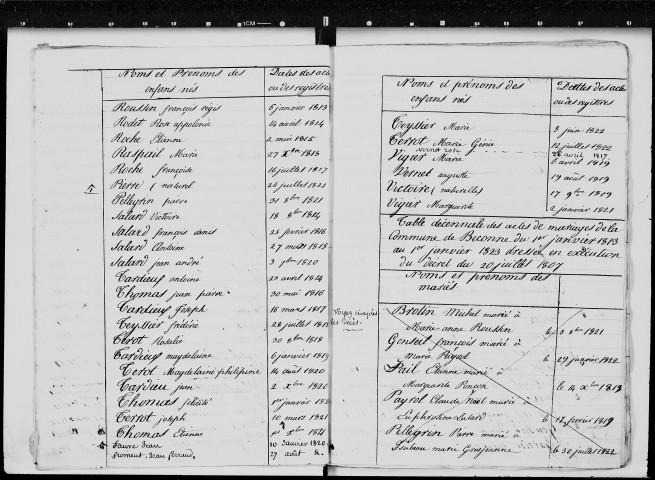 1CM
Noms et Prenoms des
enfans nés
Dates des act
ou des registres
Roussin françois régis 6 janvier 1813
Rodet Rose appolonie 14 avril 1814
Roche Etienne 2 mai 1815
Raspail Marie 27 Xbre 1813
Roche françoise 16 juillet 1817
Pierre naturel 26 juillet 1821
Pellegrin pierre 31 8bre 1821
Salard Victoire 18 8bre 1814
Salard françois denis 25 fevrier 1816
Salard Antoine 27 mars 1818
Salard jean andré 3 7bre 1820
Tardieu antoine 23 avril 1814
Thomas jean pierre 30 mai 1816
Tardieu Joseph 16 mars 1817
Teyssier fréderic 28 juillet
Terot Rosalie 30 8bre 1818
Tardieu magdelaine 6 janvier 1819
Terot Magdelaine philipine 14 août 1820
Tardieu jean 2 Xbre 1820
Thomas félicité 1er janvier 182
Terrot joseph 10 mars 1821
Thomas Etienne 1er Xbre 1821
faure Jean 10 Janvier 1820
froment, Jean ferraud 27 août &.
Noms et prénoms des
enfans nés
Dattes des acte
ou des registres
Teyssier Marie 3 juin 1822
Terrot Marie Génie 12 juillet 1822
Vernet 26 avril 1817
Vigier Marie 6 avril 1819
Vernet auguste 19 août 1819
Victoire (naturelle) 17 9bre 1819
Vigier Marguerite 2 janvier 1821
Table décennale des actes de mariages de la
Commune de Beconne du 1er janvier 1813
au 1er janvier 1823 dressée en exécution
du décret du 20 juillet 1807
Noms et prenoms des
mariés
Brotin Michel marié à
Marie anne Roussin le 3 8bre 1821
Gonseil françois marié à
Marie Peyrol le 29 janvier 1822
Pail Etienne marié à
Marguerite le 4 Xbre 1813
Payrol Claude Noël marié à
Euphrosine Salard le 17 fevrier 1819
Pellegrin Pierre marié à
Isabeau marie Grosjeanne le 30 juillet 1822